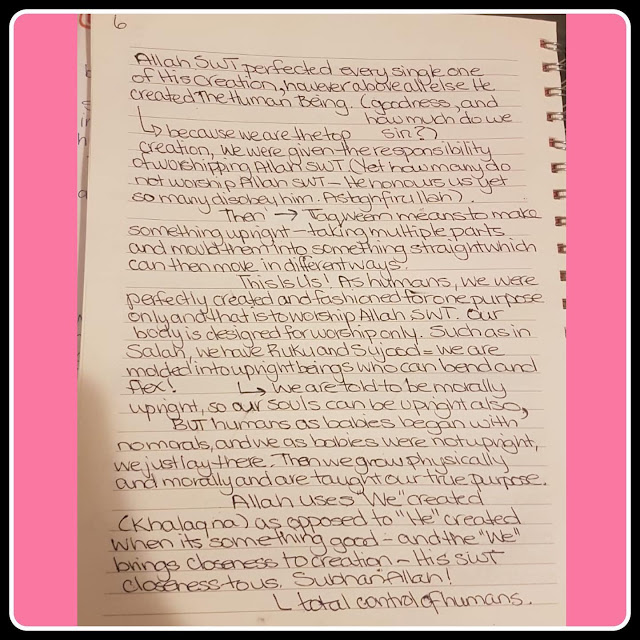 6
Allah SWT perfected every single one
of His creation, however above all else He
created The Human Being. (goodness, and
how much do we
sin?)
↳ because we are the top
creation, we were given the responsibility
of worshipping Allah SWT (Yet how many do
not worship Allah SWT - He honours us yet
so many disobey him. Astaghfirullah).
Then → Taqweem means to make
something upright - taking multiple parts
and mould them into something straight which
can then move in different ways.
This Is Us! As humans, we were
perfectly created and fashioned for one purpose
only and that is to worship Allah SWT. Our
body is designed for worship only. Such as in
Salah, we have Ruku and Sujood = we are
molded into upright beings who can bend and
flex! ↳ we are told to be morally
upright, so our souls can be upright also,
BUT humans as babies began with
no morals, and we as babies were not upright,
we just lay there. Then we grow physically
and morally and are taught our true purpose.
Allah uses "We" created
(Khalaqna) as opposed to "He" created
when its something good - and the "We"
brings closeness to creation - His SWT
closeness to us. SubhanAllah!
↳ total control of humans.